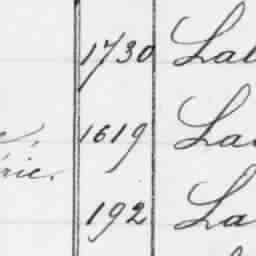 1730 Lal
1619 La
rie.
192 La